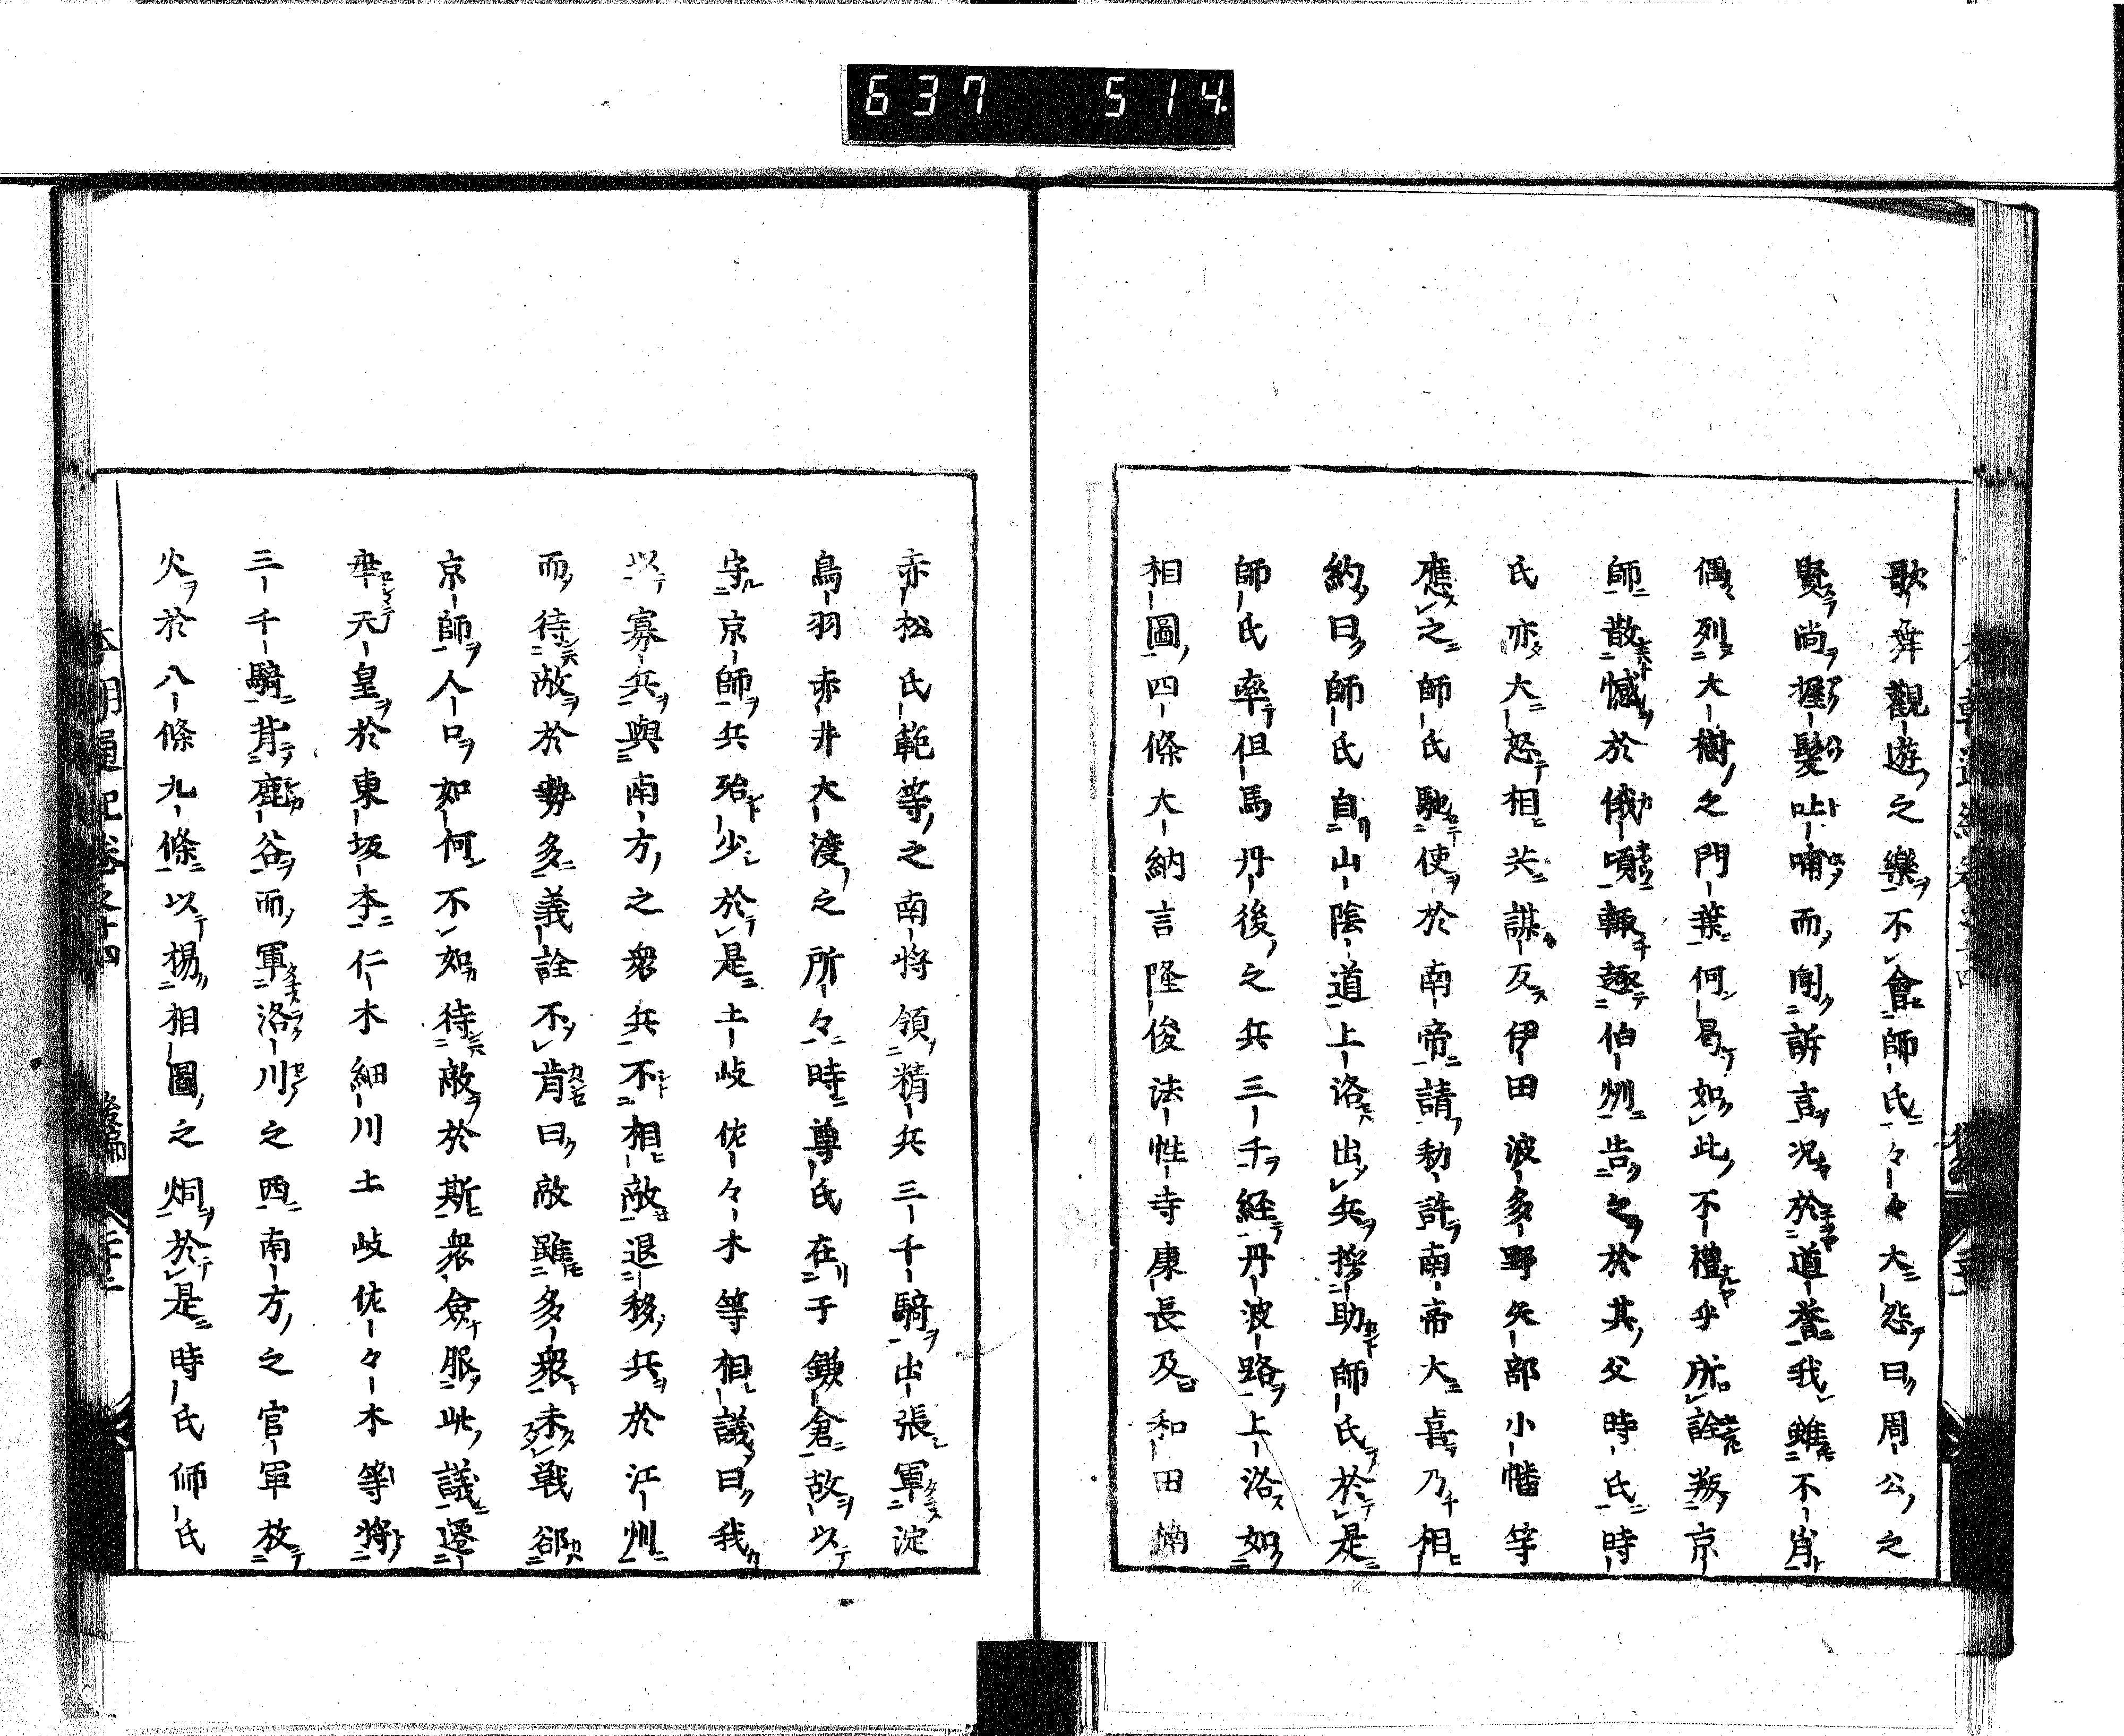 637 514
歌舞觀遊之樂不會師氏々々大怨曰周公之
賢尚握髮吐哺而聞訴言況於道誉我雖不肖
偶列大樹之門葉何曷如此不禮乎所詮叛京
師散憾於俄頃輙趣伯州告之於其父時氏時
氏亦大怒相共謀反伊田波多野矢部小幡等
應之師氏馳使於南帝請勅許南帝大喜乃相
約曰師氏自山陰道上洛出兵援助師氏於是
師氏率但馬丹後之兵三千経丹波路上洛如
相圖四條大納言隆俊法性寺康長及和田楠
赤松氏範等之南将領精兵三千騎出張軍淀
鳥羽赤井大渡之所々時尊氏在于鎌倉故以
守京師兵殆少於是土岐佐々木等相議曰我
以寡兵與南方之衆兵不相敵退移兵於江州
而待敵於勢多義詮不肯曰敵雖多衆未戦郤
京師人口如何不如待敵於斯衆僉服此議遷
率天皇於東坂本仁木細川土岐佐々木等将
三千騎背鹿谷而軍洛川之西南方之官軍放
火於八條九條以揚相圖之烟於是時氏師氏